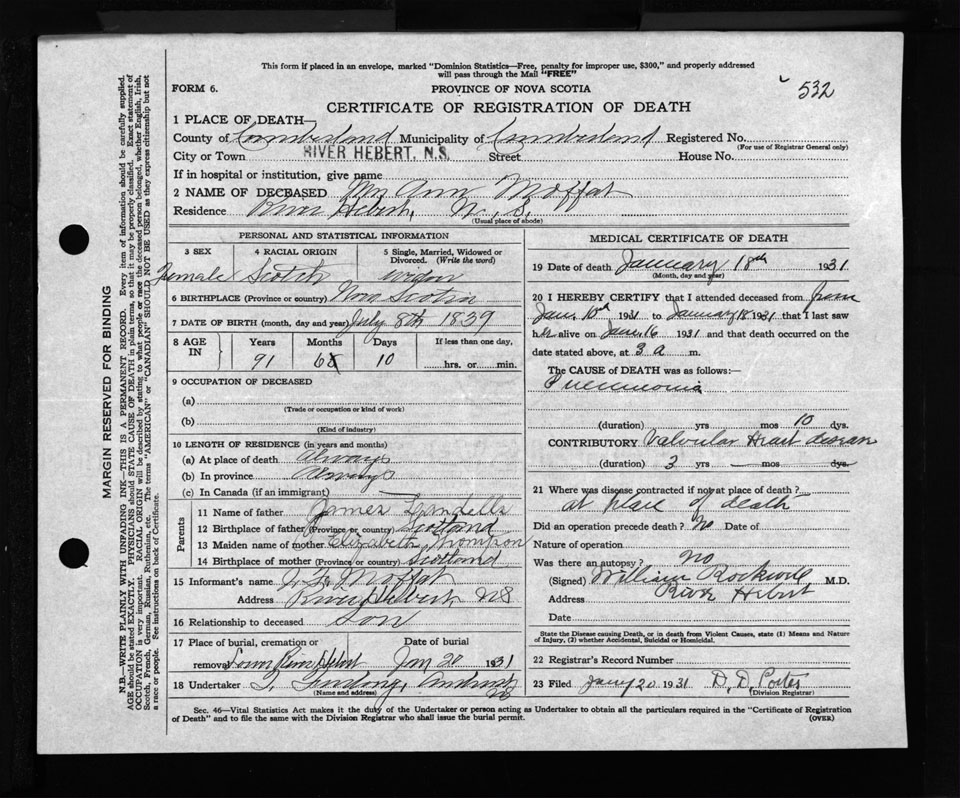 This form if placed in an envelope, marked "Dominion Statistics—Free, penalty for improper use, $300," and properly addressed
will pass through the Mail "FREE"
FORM 6.
PROVINCE OF NOVA SCOTIA
532
CERTIFICATE OF REGISTRATION OF DEATH
1 PLACE OF DEATH
County of Cumberland Municipality of Cumberland Registered No.
(For use of Registrar General only)
City or Town RIVER HEBERT, N.S. Street House No.
If in hospital or institution, give name
2 NAME OF DECEASED Mrs Ann Moffat
Residence River Hebert, N.S.
(Usual place of abode)
PERSONAL AND STATISTICAL INFORMATION
3 SEX 4 RACIAL ORIGIN 5 Single, Married, Widowed or Divorced. (Write the word)
Female Scotch widow
6 BIRTHPLACE (Province or country) Nova Scotia
7 DATE OF BIRTH (month, day and year) July 8th 1839
8 AGE IN Years Months Days If less than one day,
91 6 10 hrs. or min.
9 OCCUPATION OF DECEASED
(a)
(Trade or occupation or kind of work)
(b)
(Kind of industry)
10 LENGTH OF RESIDENCE (in years and months)
(a) At place of death Always
(b) In province Always
(c) In Canada (if an immigrant)
Parents
11 Name of father James
12 Birthplace of father (Province or country) Scotland
13 Maiden name of mother Elizabeth Thompson
14 Birthplace of mother (Province or country) Scotland
15 Informant's name Moffat
Address River Hebert NS
16 Relationship to deceased Son
17 Place of burial, cremation or removal Lower River Hebert Date of burial Jan 20 1931
18 Undertaker Furlong, Amherst NS
(Name and address)
MEDICAL CERTIFICATE OF DEATH
19 Date of death January 18th 1931
(Month, day and year)
20 I HEREBY CERTIFY that I attended deceased from from
Jan. 10th 1931 to January 18 1931 that I last saw
her alive on Jan. 16 1931 and that death occurred on the
date stated above, at 3 a m.
The CAUSE of DEATH was as follows:—
Pneumonia
(duration) yrs mos 10 dys.
CONTRIBUTORY Valvular Heart disease
(duration) 3 yrs mos dys.
21 Where was disease contracted if not at place of death?
at place of death
Did an operation precede death? No Date of
Nature of operation
Was there an autopsy? no
(Signed) William Rockwell M.D.
Address River Hebert
Date
State the Disease causing Death, or in death from Violent Causes, state (1) Means and Nature
of Injury, (2) whether Accidental, Suicidal or Homicidal.
22 Registrar's Record Number
23 Filed Jany 20 1931 D. D. Porter
(Division Registrar)
Sec. 46—Vital Statistics Act makes it the duty of the Undertaker or person acting as Undertaker to obtain all the particulars required in the "Certificate of Registration
of Death" and to file the same with the Division Registrar who shall issue the burial permit.
(OVER)
MARGIN RESERVED FOR BINDING
N.B.—WRITE PLAINLY WITH UNFADING INK—THIS IS A PERMANENT RECORD. Every item of information should be carefully supplied.
AGE should be stated EXACTLY. PHYSICIANS should STATE CAUSE OF DEATH in plain terms, so that it may be properly classified. Exact statement of
OCCUPATION is very important. RACIAL ORIGIN will be described by stating to what people or race the deceased person belonged, whether English, Irish,
Scotch, French, German, Russian, Ruthenian, etc. The terms "AMERICAN" or "CANADIAN" SHOULD NOT BE USED as they express citizenship but not
a race or people. See instructions on back of Certificate.